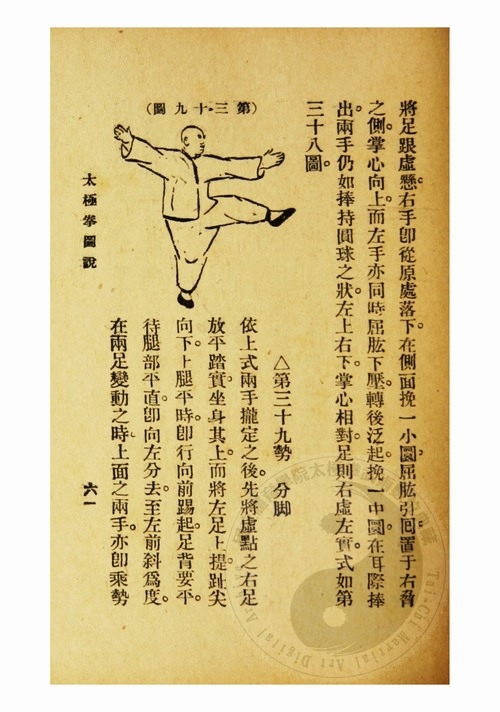 將足跟虛懸。右手卽從原處落下。在側面挽一小圜。屈肱引囘。置于右脅
之側。掌心向上。而左手亦同時屈肱下壓。轉後泛起。挽一中圜。在耳際捧
出。兩手仍如捧持圓球之狀。左上右下。掌心相對。足則右虛左實。式如第
三十八圖。
(第三十九圖)
△第三十九勢 分脚
依上式兩手攏定之後。先將虛點之右足
放平踏實。坐身其上。而將左足上提。趾尖
向下。上腿平時。卽行向前踢起。足背要平。
待腿部平直。卽向左分去。至左前斜爲度。
在兩足變動之時。上面之兩手。亦卽乘勢
太極拳圖說
六一
Tai-Chi Martial Art Digital